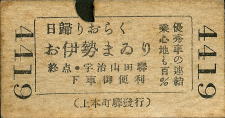 4419
日歸りおらく
お伊勢まゐり
終点・宇治山田驛
下車御便利
優秀車の連結
乗心地も百%
(上本町驛發行)
4419